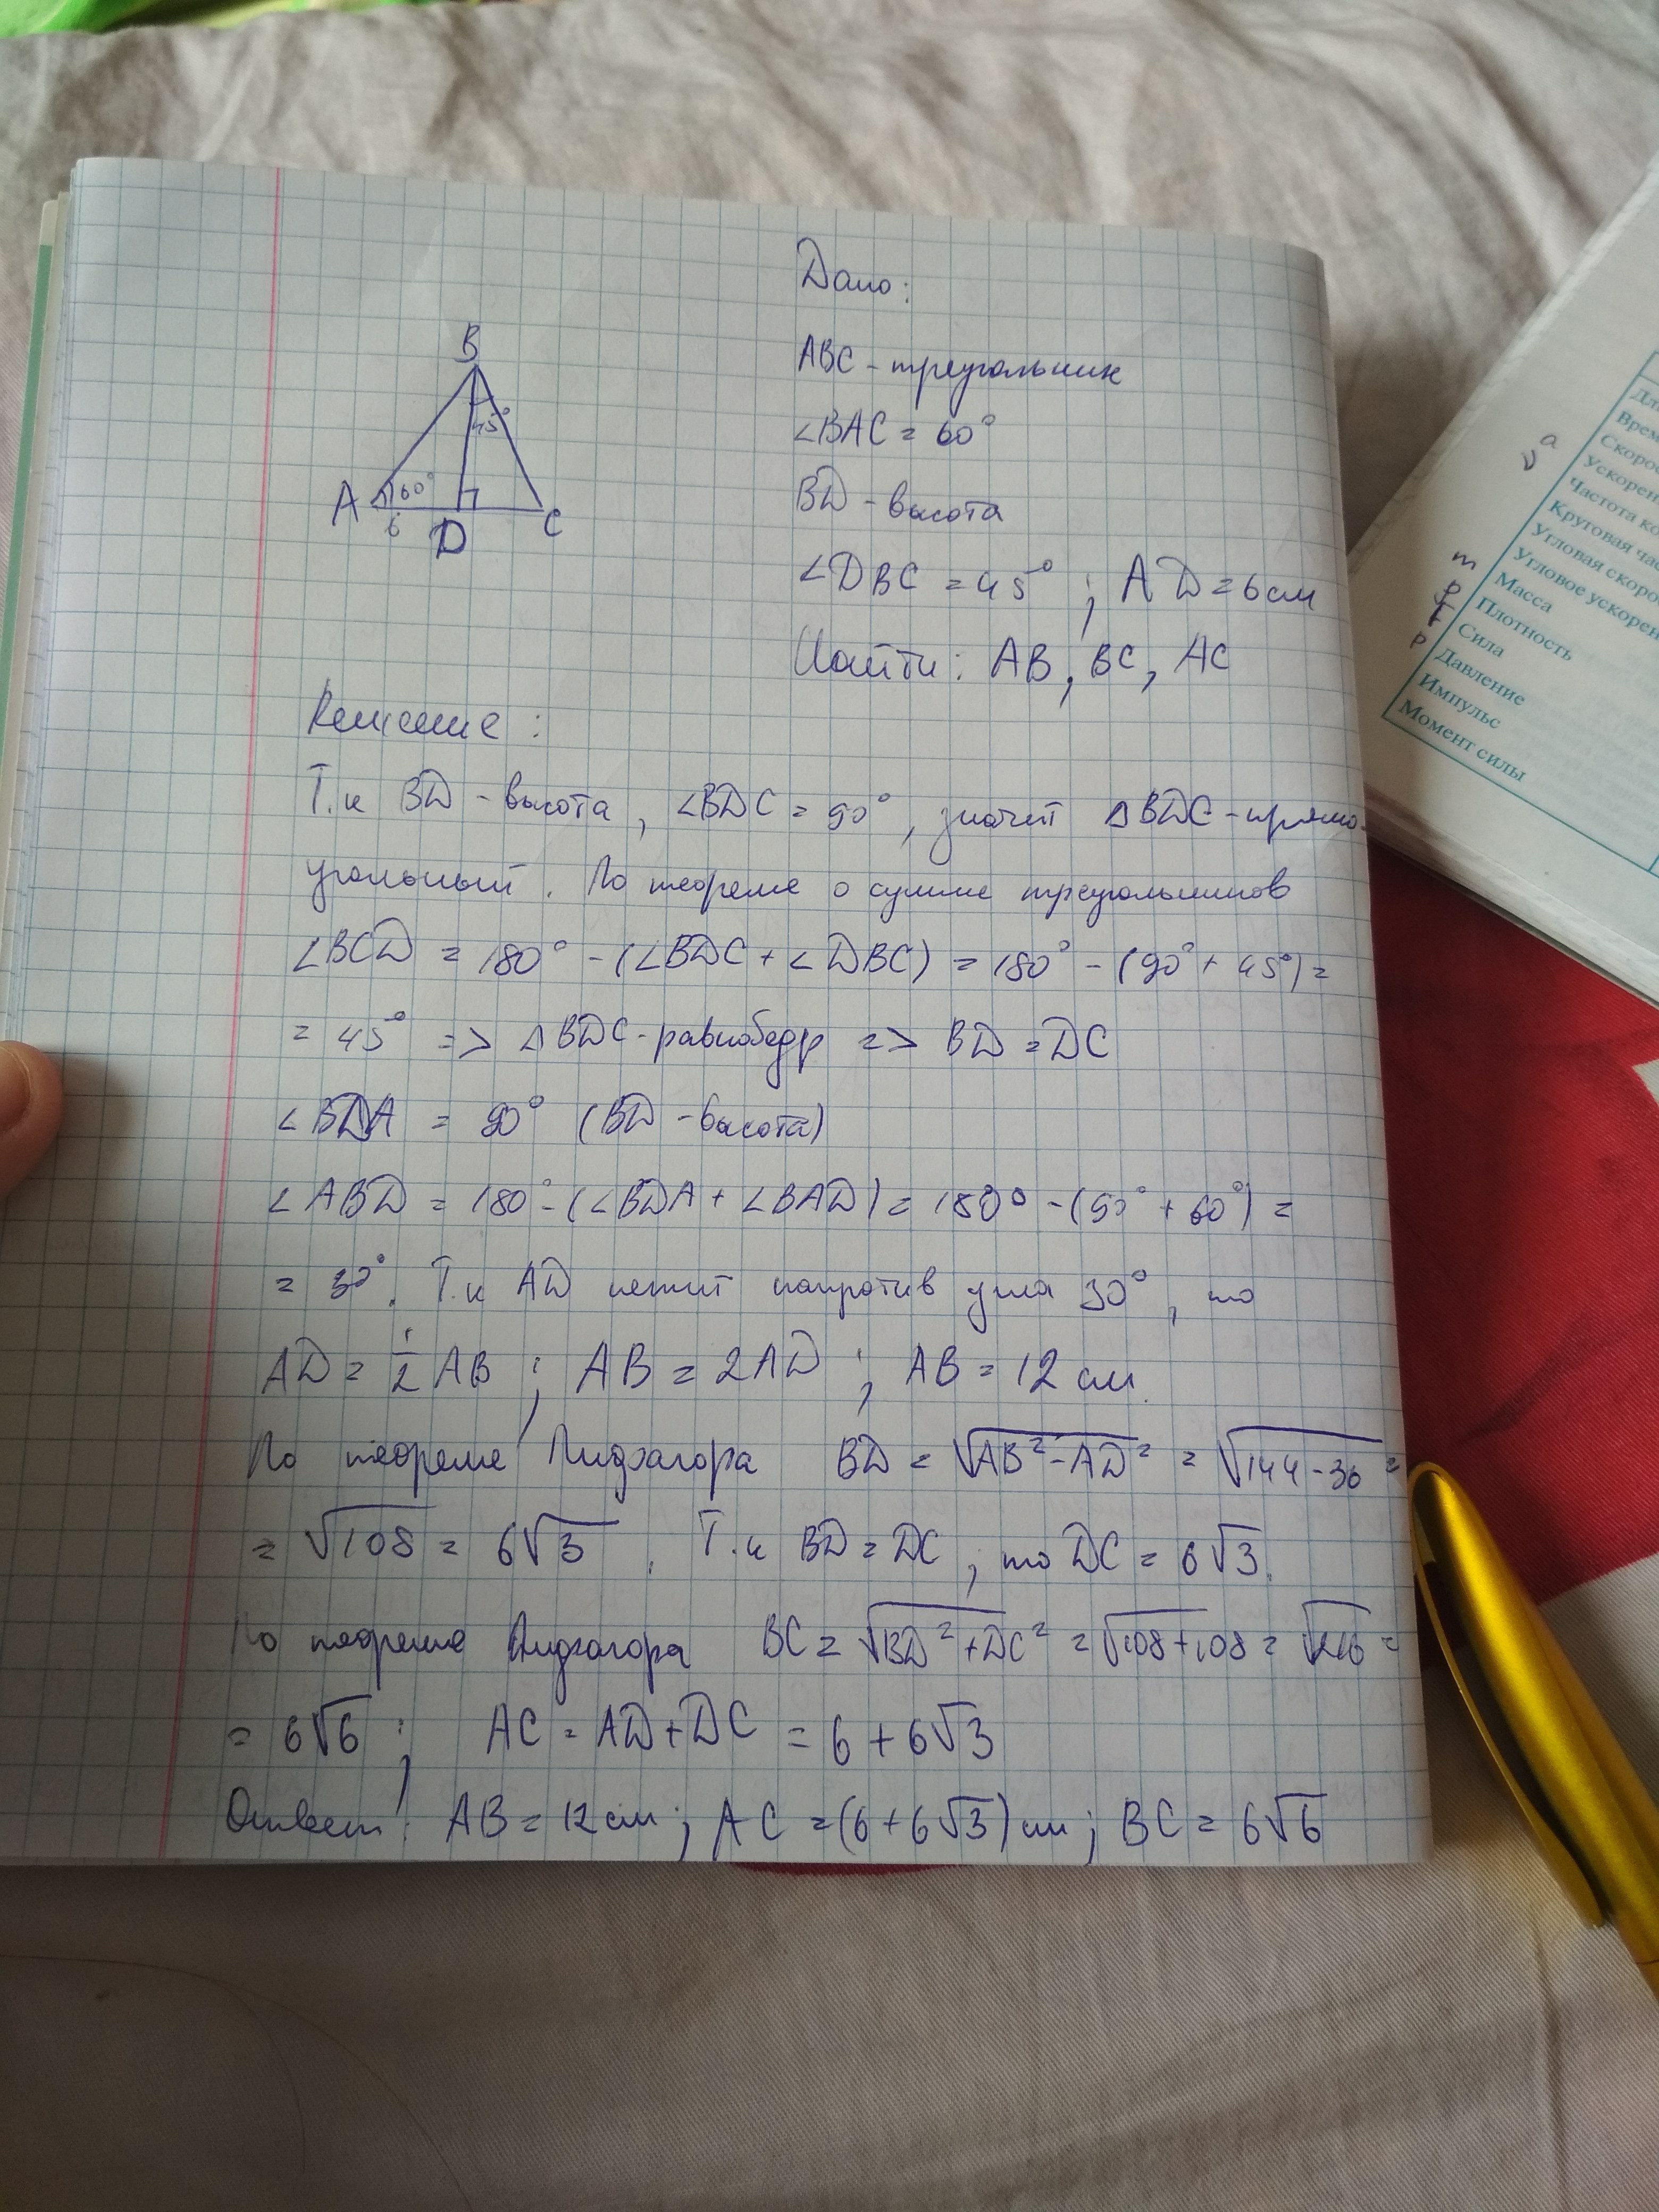 Дано:
B
ABC - треугольник
45°
∠BAC = 60°
A 60°
BD - высота
6 D C
∠DBC = 45° ; AD = 6 см
Найти: AB, BC, AC
Решение:
Т.к BD - высота, ∠BDC = 90°, значит ΔBDC - прямо-
угольный. По теореме о сумме треугольников
∠BCD = 180° - (∠BDC + ∠DBC) = 180° - (90° + 45°) =
= 45° => ΔBDC - равнобедр => BD = DC
∠BDA = 90° (BD - высота)
∠ABD = 180° - (∠BDA + ∠BAD) = 180° - (90° + 60°) =
= 30°. Т.к AD лежит напротив угла 30°, то
AD = 1/2 AB ; AB = 2AD ; AB = 12 см.
По теореме Пифагора BD = √AB² - AD² = √144 - 36 =
= √108 = 6√3 . Т.к BD = DC, то DC = 6√3.
По теореме Пифагора BC = √BD² + DC² = √108 + 108 = √216 =
= 6√6 ; AC = AD + DC = 6 + 6√3
Ответ: AB = 12 см; AC = (6 + 6√3) см; BC = 6√6
a
v
m
p
Ускорен
Частота ко
Круговая час
Угловая скоро
Угловое ускорен
Масса
Плотность
Сила
Давление
Импульс
Момент силы